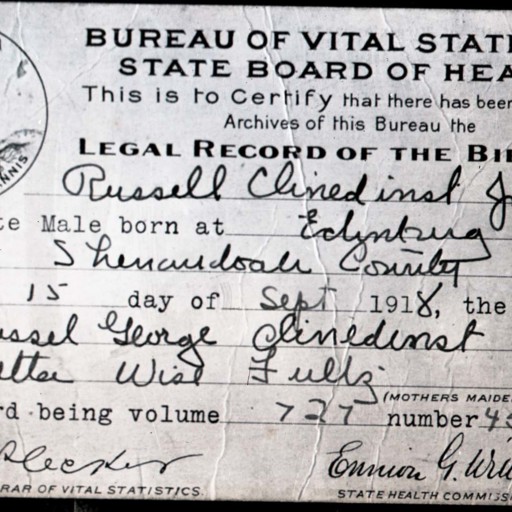 BUREAU OF VITAL STATI
STATE BOARD OF HEA
This is to Certify that there has been
Archives of this Bureau the
LEGAL RECORD OF THE BI
Russell Clinedinst J
te Male born at Edinburg
Shenandoah County
15 day of Sept 1918, the
ussel George Clinedinst
etta Wise Fultz
(MOTHERS MAIDE
rd being volume 727 number 45
RAR OF VITAL STATISTICS.
Ennion G. Wil
STATE HEALTH COMMISS
NNIS